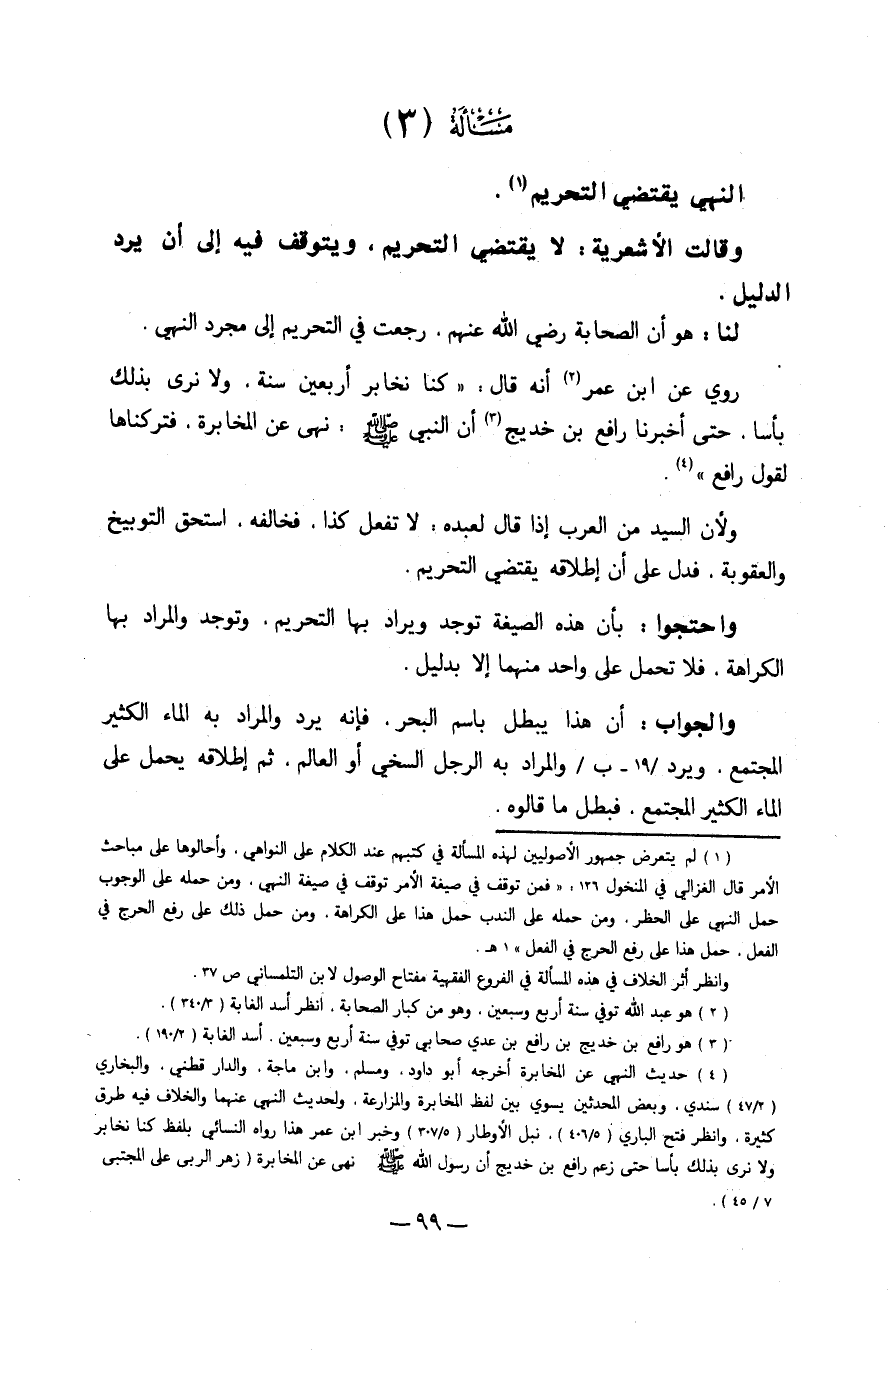 مسألة (٣)
النهي يقتضي التحريم(١) .
وقالت الأشعرية : لا يقتضي التحريم ، ويتوقف فيه إلى أن يرد
الدليل .
لنا : هو أن الصحابة رضي الله عنهم ، رجعت في التحريم إلى مجرد النهي .
روي عن ابن عمر(٢) أنه قال : « كنا نخابر أربعين سنة ، ولا نرى بذلك
بأسا ، حتى أخبرنا رافع بن خديج(٣) أن النبي ﷺ : نهى عن المخابرة ، فتركناها
لقول رافع »(٤) .
ولأن السيد من العرب إذا قال لعبده : لا تفعل كذا ، فخالفه ، استحق التوبيخ
والعقوبة ، فدل على أن إطلاقه يقتضي التحريم .
واحتجوا : بأن هذه الصيغة توجد ويراد بها التحريم ، وتوجد والمراد بها
الكراهة ، فلا تحمل على واحد منهما إلا بدليل .
والجواب : أن هذا يبطل باسم البحر ، فإنه يرد والمراد به الماء الكثير
المجتمع ، ويرد /١٩ - ب / والمراد به الرجل السخي أو العالم ، ثم إطلاقه يحمل على
الماء الكثير المجتمع ، فبطل ما قالوه .
( ١ ) لم يتعرض جمهور الأصوليين لهذه المسألة في كتبهم عند الكلام على النواهي ، وأحالوها على مباحث
الأمر قال الغزالي في المنخول ١٢٦ : « فمن توقف في صيغة الأمر توقف في صيغة النهي ، ومن حمله على الوجوب
حمل النهي على الحظر ، ومن حمله على الندب حمل هذا على الكراهة ، ومن حمل ذلك على رفع الحرج في
الفعل ، حمل هذا على رفع الحرج في الفعل » ١ هـ .
وانظر أثر الخلاف في هذه المسألة في الفروع الفقهية مفتاح الوصول لابن التلمساني ص ٣٧ .
( ٢ ) هو عبد الله توفي سنة أربع وسبعين ، وهو من كبار الصحابة ، انظر أسد الغابة ( ٣٤٠/٣ ) .
( ٣ ) هو رافع بن خديج بن رافع بن عدي صحابي توفي سنة أربع وسبعين . أسد الغابة ( ١٩٠/٢ ) .
( ٤ ) حديث النهي عن المخابرة أخرجه أبو داود ، ومسلم ، وابن ماجة ، والدار قطني ، والبخاري
( ٤٧/٢ ) سندي ، وبعض المحدثين يسوي بين لفظ المخابرة والمزارعة ، ولحديث النهي عنهما والخلاف فيه طرق
كثيرة ، وانظر فتح الباري ( ٤٠٦/٥ ) ، نبل الأوطار ( ٣٠٧/٥ ) وخبر ابن عمر هذا رواه النسائي بلفظ كنا نخابر
ولا نرى بذلك بأسا حتى زعم رافع بن خديج أن رسول الله ﷺ نهى عن المخابرة ( زهر الربى على المجتبى
٧ / ٤٥ ) .
— ٩٩ —